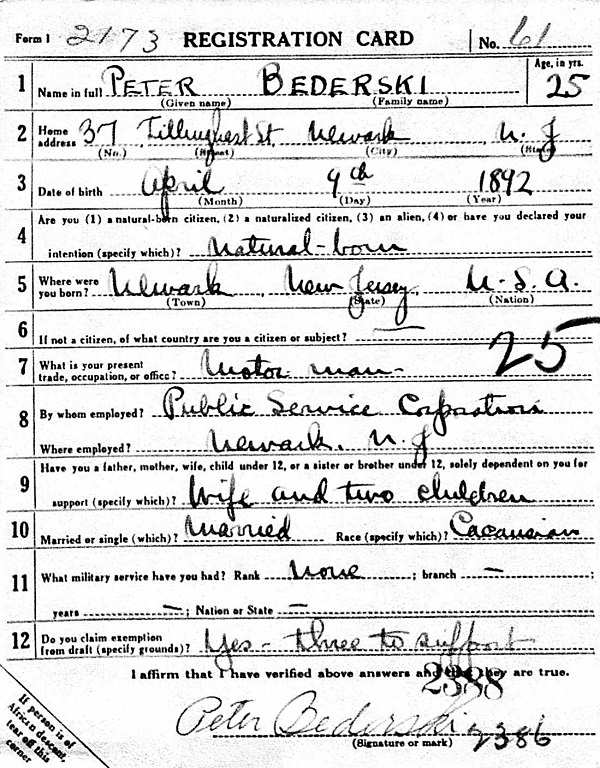 Form 1 2173 REGISTRATION CARD No. 61
1 Name in full PETER BEDERSKI Age, in yrs. 25
(Given name) (Family name)
2 Home address 37 Tillinghest St Newark N. J
(No.) (Street) (City) (State)
3 Date of birth April 9th 1892
(Month) (Day) (Year)
4 Are you (1) a natural-born citizen, (2) a naturalized citizen, (3) an alien, (4) or have you declared your
intention (specify which)? Natural-born
5 Where were you born? Newark, New Jersey, U.S.A.
(Town) (State) (Nation)
6 If not a citizen, of what country are you a citizen or subject? —
7 What is your present trade, occupation, or office? Motor man - 25
8 By whom employed? Public Service Corporation
Where employed? Newark. N. J
9 Have you a father, mother, wife, child under 12, or a sister or brother under 12, solely dependent on you for
support (specify which)? Wife and two children
10 Married or single (which)? Married Race (specify which)? Cacausian
11 What military service have you had? Rank None ; branch — ;
years — ; Nation or State —
12 Do you claim exemption from draft (specify grounds)? Yes - three to support
I affirm that I have verified above answers and that they are true.
2388
Peter Bederski 2386
(Signature or mark)
If person is of
African descent,
tear off this
corner